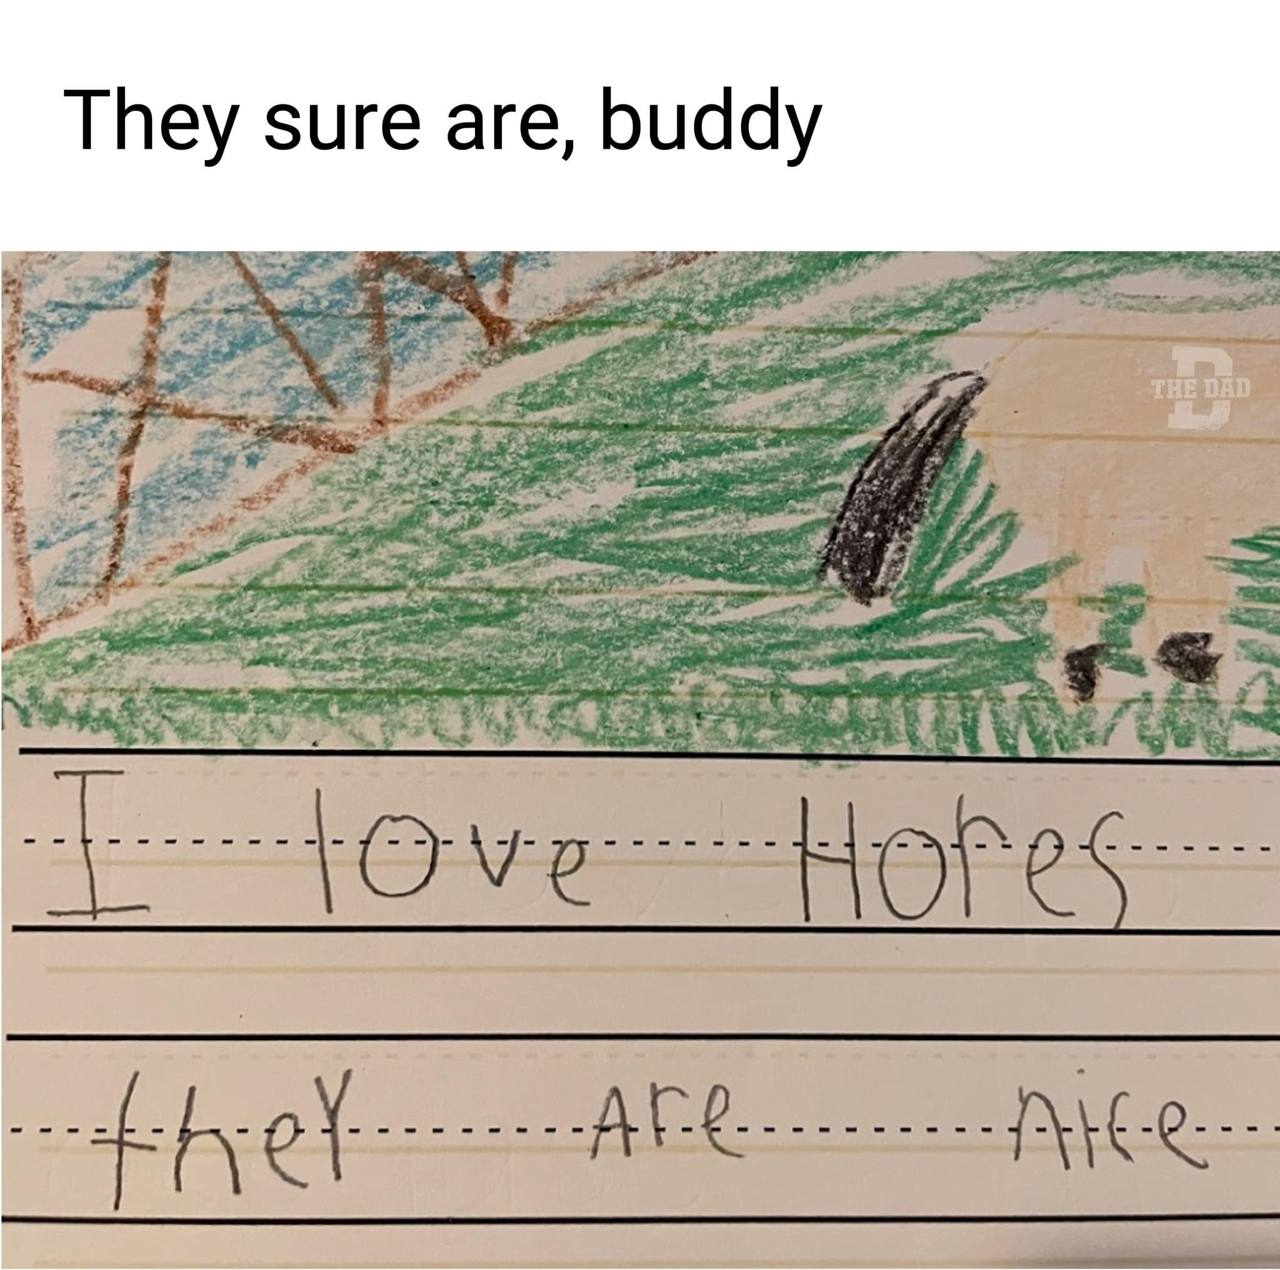 They sure are, buddy
THE DAD
I love Hores
they Are nice